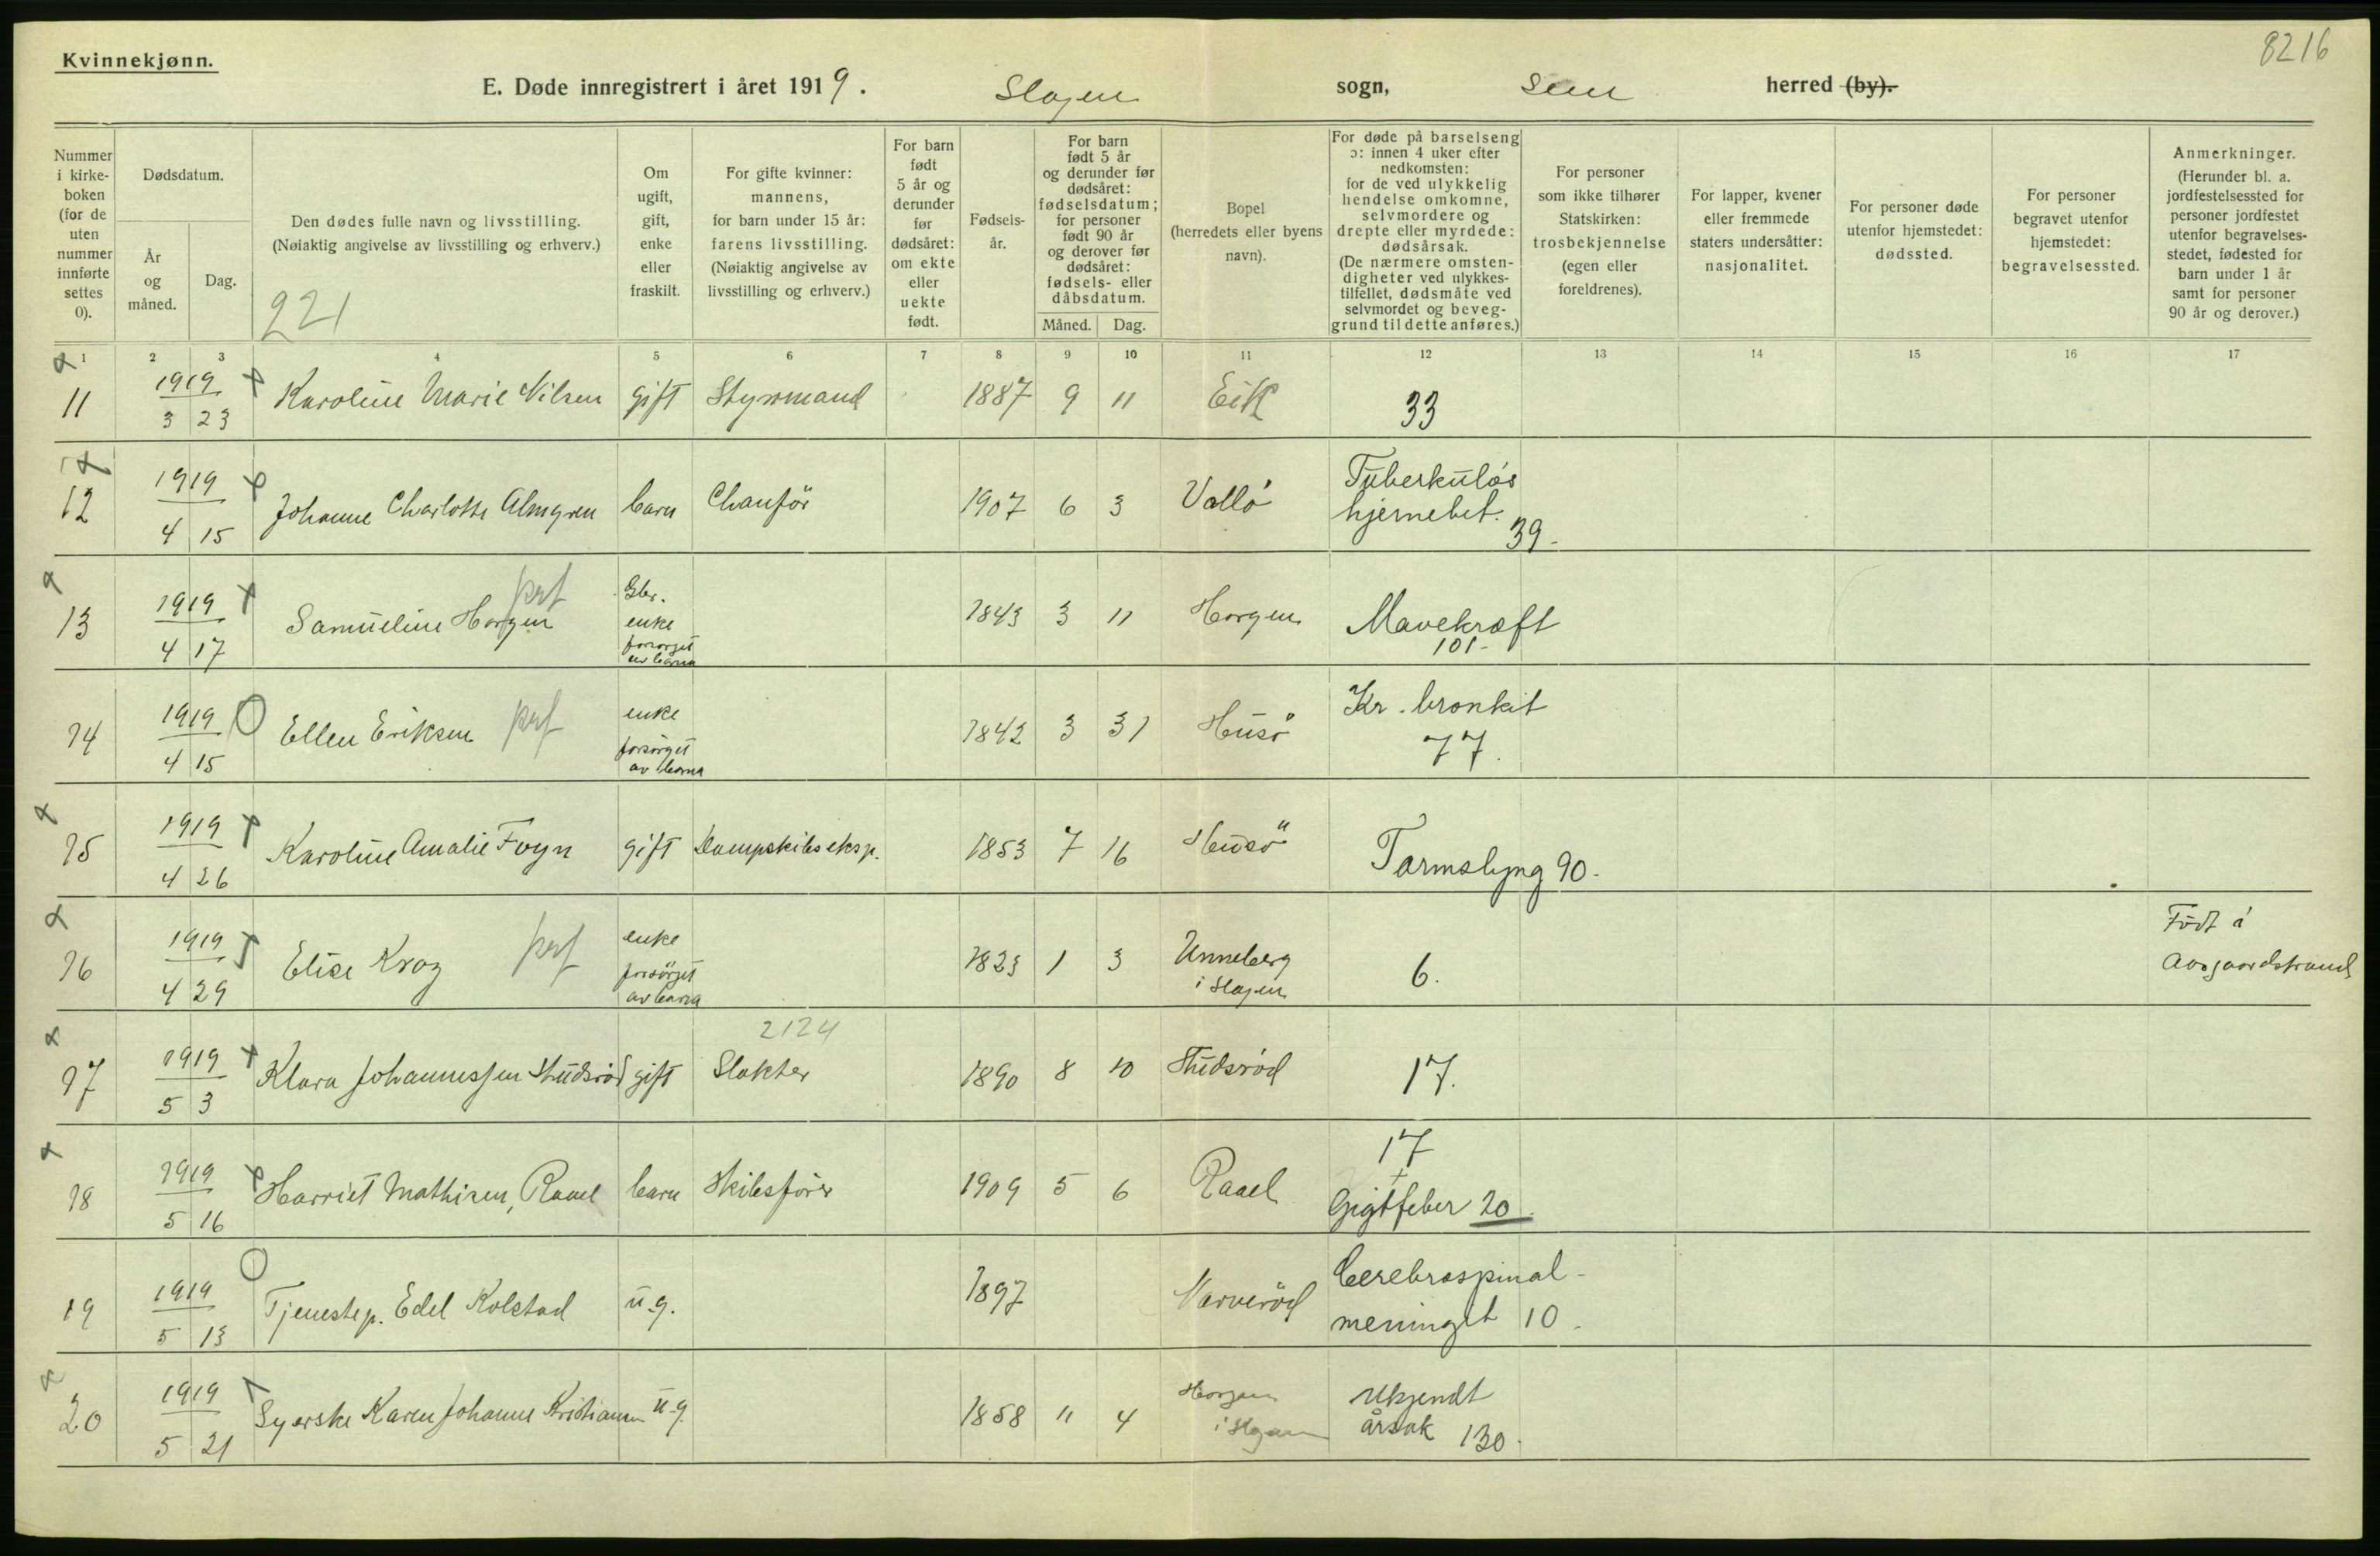 8216
Kvinnekjønn.
E. Døde innregistrert i året 1919. Slagen sogn, Sem herred (by).
Nummer i kirke-boken (for de uten nummer innførte settes 0).
Dødsdatum.
År og måned.
Dag.
Den dødes fulle navn og livsstilling.
(Nøiaktig angivelse av livsstilling og erhverv.)
221
Om ugift, gift, enke eller fraskilt.
For gifte kvinner: mannens, for barn under 15 år: farens livsstilling. (Nøiaktig angivelse av livsstilling og erhverv.)
For barn født 5 år og derunder før dødsåret: om ekte eller uekte født.
Fødsels-år.
For barn født 5 år og derunder før dødsåret: fødselsdatum; for personer født 90 år og derover før dødsåret: fødsels- eller dåbsdatum.
Måned. Dag.
Bopel (herredets eller byens navn).
For døde på barselseng ɔ: innen 4 uker efter nedkomsten: for de ved ulykkelig hendelse omkomne, selvmordere og drepte eller myrdede: dødsårsak. (De nærmere omsten-digheter ved ulykkes-tilfellet, dødsmåte ved selvmordet og beveg-grund til dette anføres.)
For personer som ikke tilhører Statskirken: trosbekjennelse (egen eller foreldrenes).
For lapper, kvener eller fremmede staters undersåtter: nasjonalitet.
For personer døde utenfor hjemstedet: dødssted.
For personer begravet utenfor hjemstedet: begravelsessted.
Anmerkninger. (Herunder bl. a. jordfestelsessted for personer jordfestet utenfor begravelses-stedet, fødested for barn under 1 år samt for personer 90 år og derover.)
1 2 3 4 5 6 7 8 9 10 11 12 13 14 15 16 17
11 1919 3 23 Karoline Marie Nilsen gift Styrmand 1887 9 11 Eik 33
12 1919 4 15 Johanne Charlotte Almgren barn Chauför 1907 6 3 Vallö Tuberkuløs hjernebet. 39-
13 1919 4 17 Samueline Horgen Gbr. enke forsorget av barna 1843 3 11 Horgen Mavekræft 101-
14 1919 4 15 Ellen Eriksen enke forsörget av barna 1842 3 31 Husö Kr. bronkit 77.
15 1919 4 26 Karoline Amalie Foyn gift Dampskibseksp. 1853 7 16 Husö Tarmslyng 90-
16 1919 4 29 Elise Krog enke forsörget av barna 1823 1 3 Unneberg i Slagen 6. Född å Aasgaardstrand
2124
17 1919 5 3 Klara Johannessen Studsrød gift Slakter 1890 8 10 Studsrød 17.
18 1919 5 16 Harriet Mathisen, Raael barn Skibsfører 1909 5 6 Raael 17 + Gigtfeber 20.
19 1919 5 13 Tjenestep. Edel Kolstad u.g. 1897 Narverød Cerebrospinal-meninget 10.
20 1919 5 21 Syerske Karen Johanne Kristiansen u.g. 1858 11 4 Horgen i Slagen Ukjendt årsak 130.